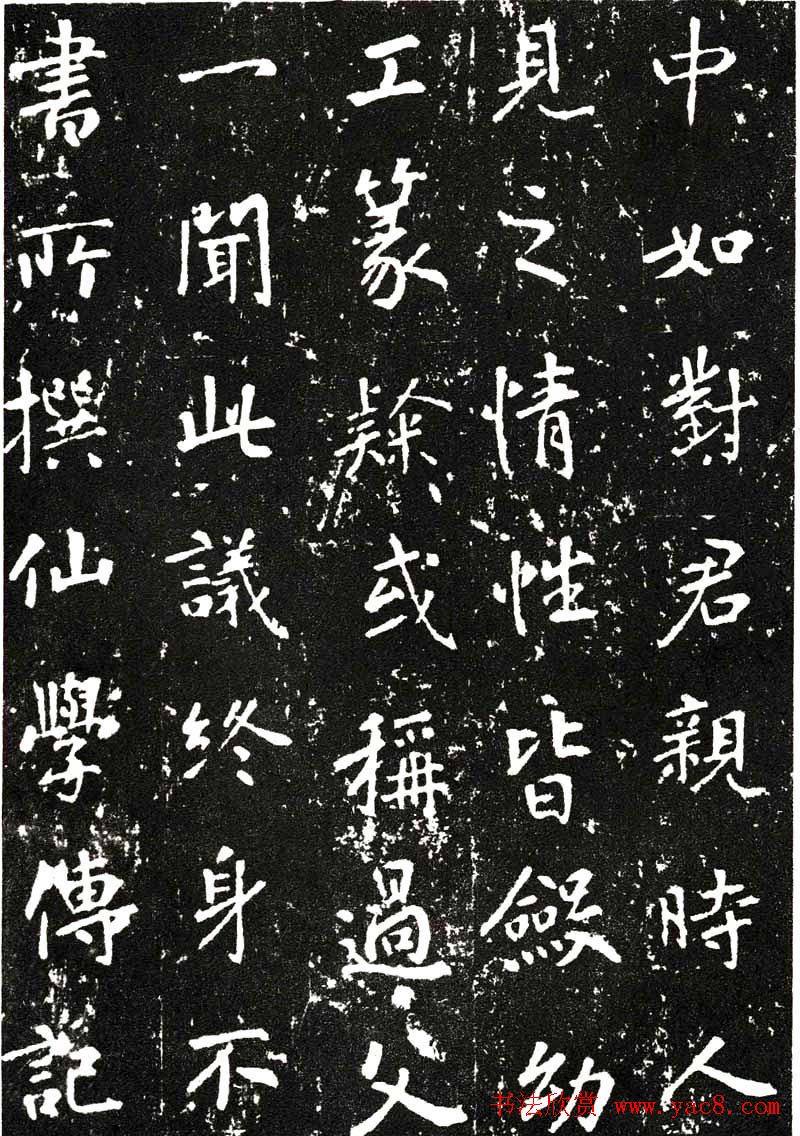 中如對君親時人
見之情性皆斂幼
工篆隸或稱過父
一聞此議終身不
書所撰仙學傳記
书法欣赏 www.yac8.com